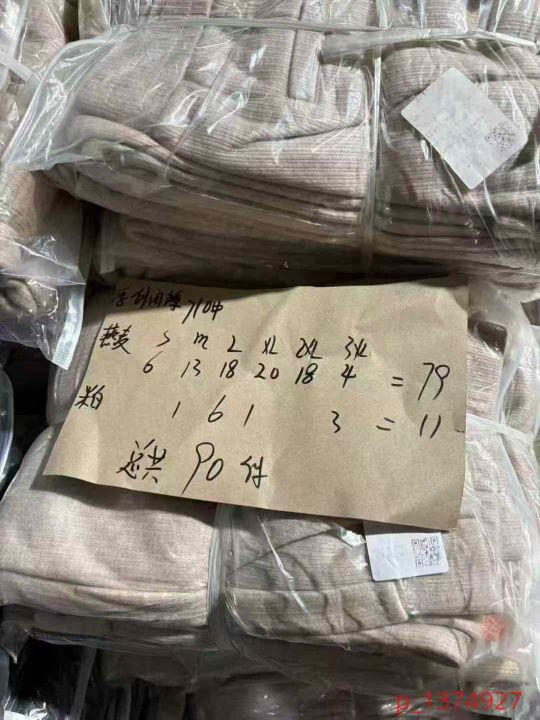 710中
燕麦 S M L XL 2XL 3XL
6 13 18 20 18 4 = 79
米白 1 6 1 3 = 11
总共 90 件
p_1374927